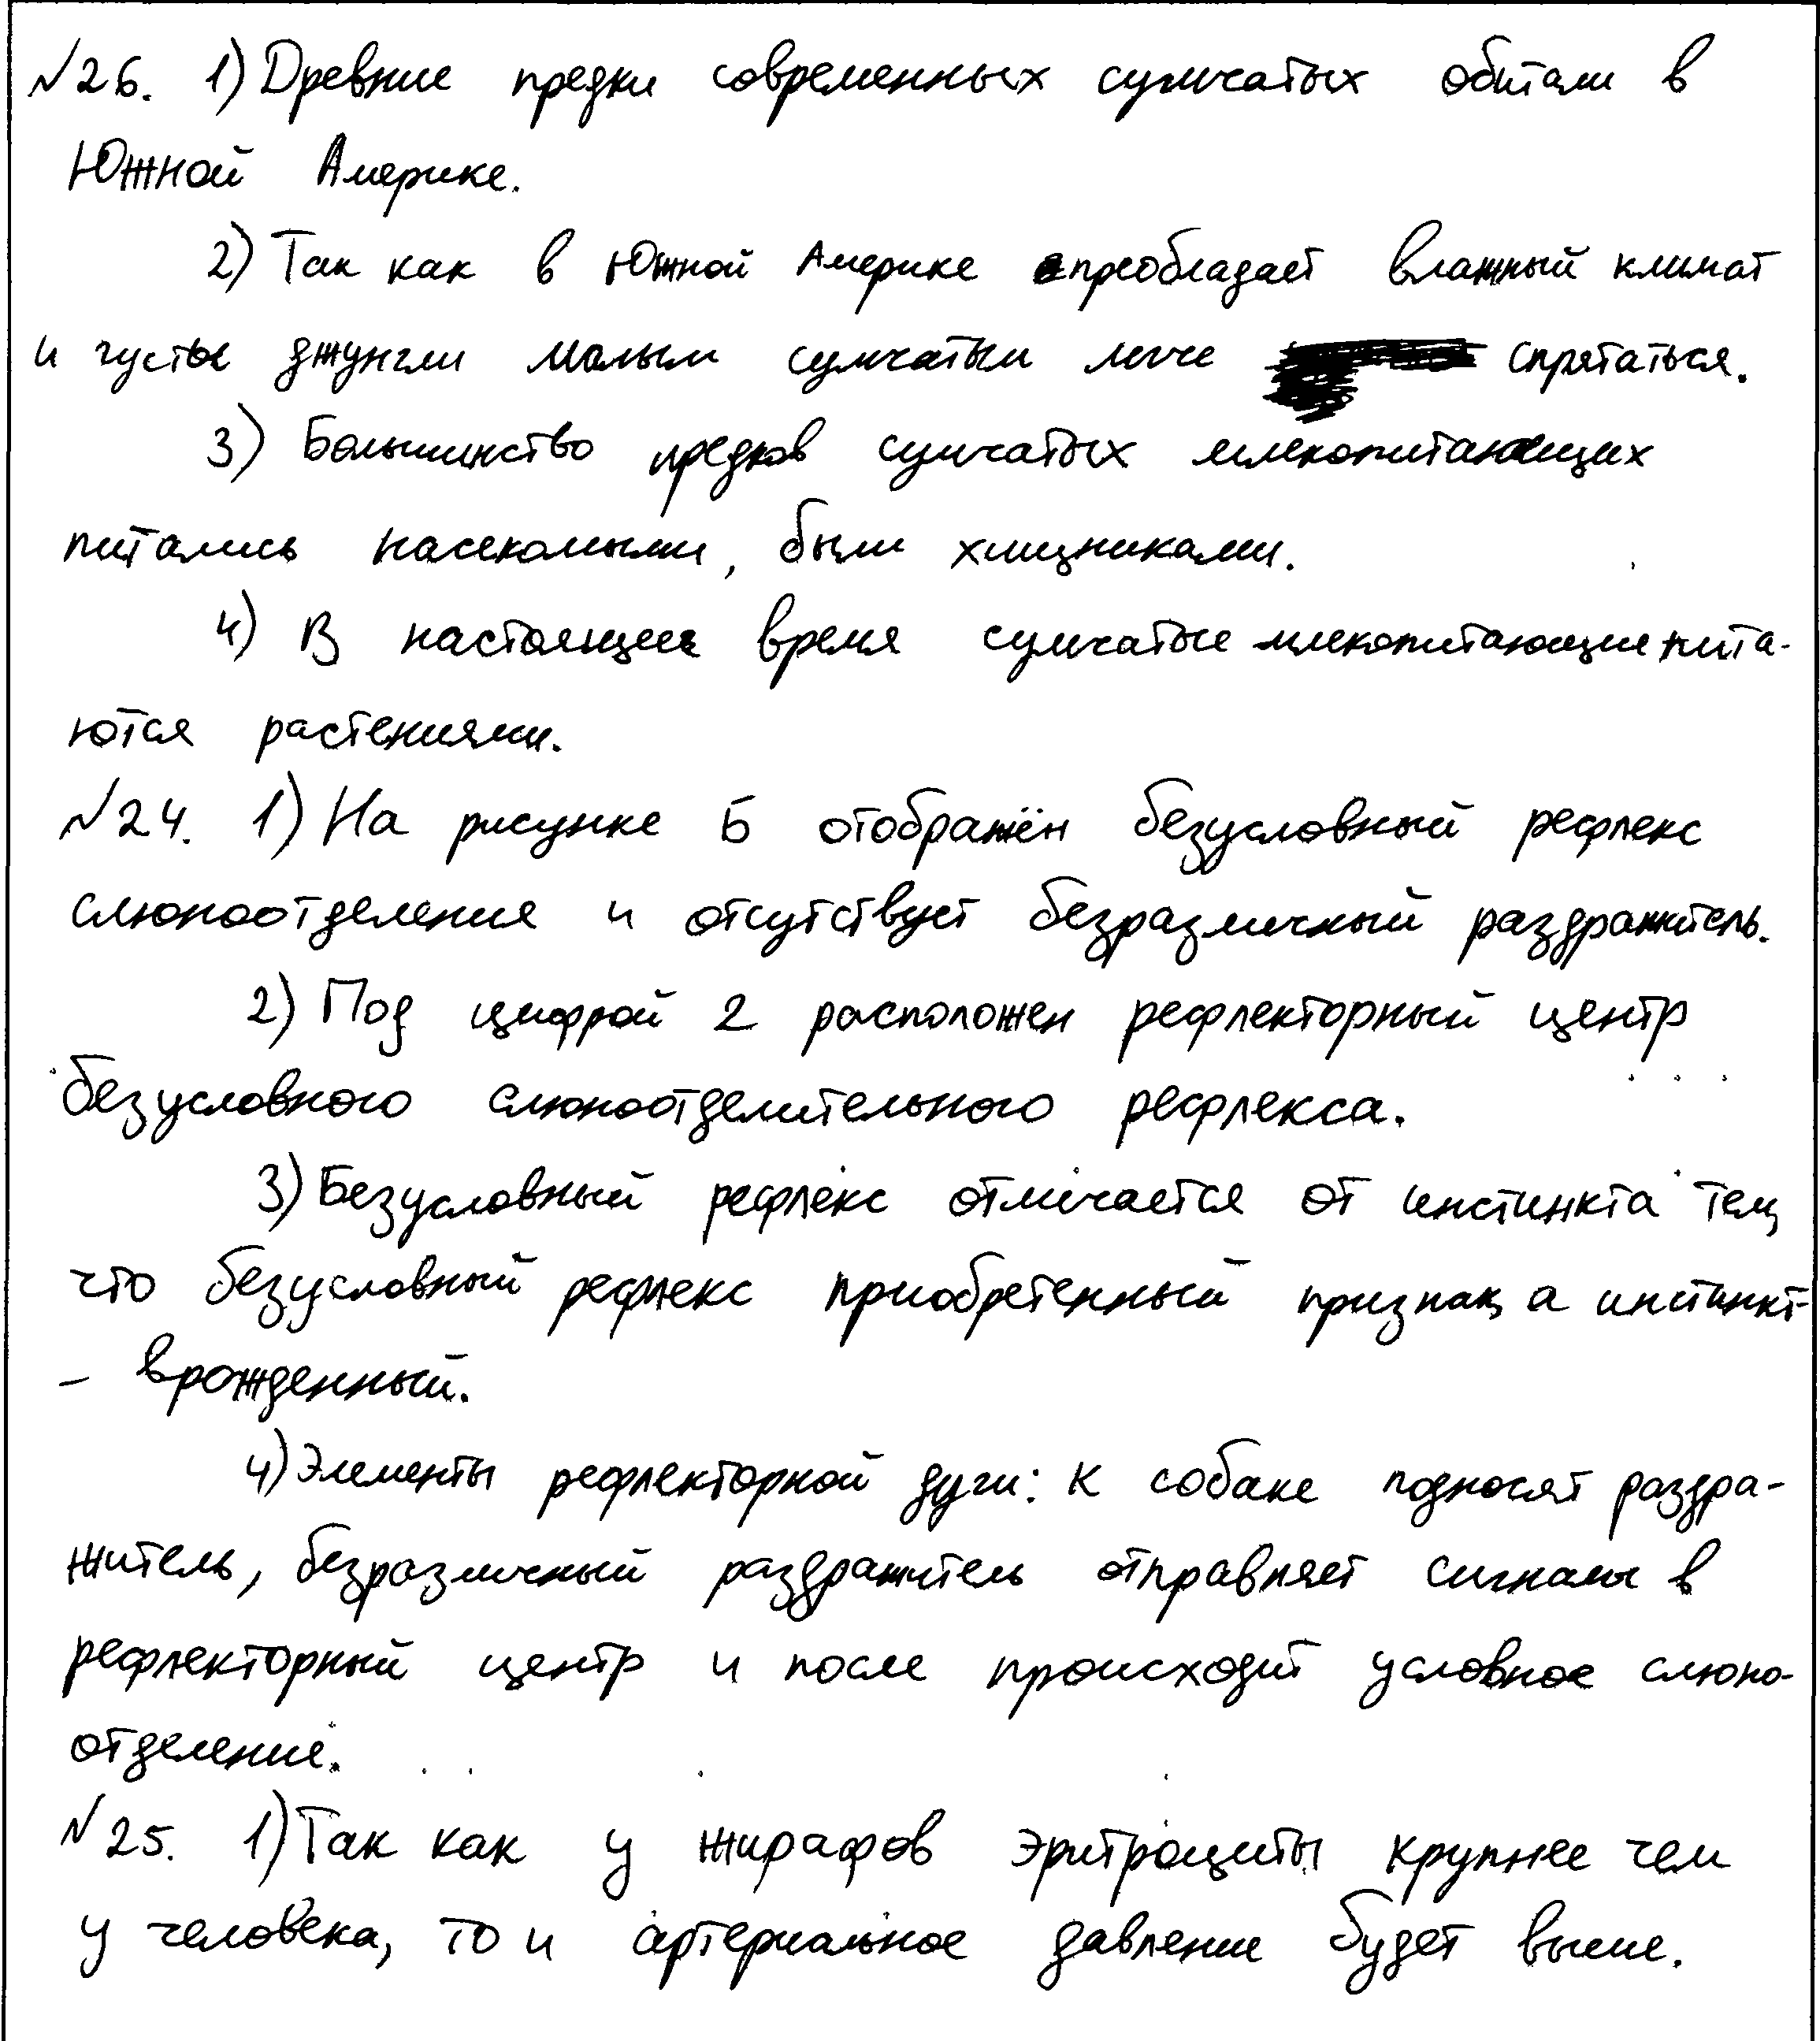 №26. 1) Древние предки современных сумчатых обитали в
Южной Америке.
2) Так как в Южной Америке преобладает влажный климат
и густые джунгли малым сумчатым легче спрятаться.
3) Большинство предков сумчатых млекопитающих
питались насекомыми, были хищниками.
4) В настоящее время сумчатые млекопитающие пита-
ются растениями.
№24. 1) На рисунке Б отображён безусловный рефлекс
слюноотделения и отсутствует безразличный раздражитель.
2) Под цифрой 2 расположен рефлекторный центр
безусловного слюноотделительного рефлекса.
3) Безусловный рефлекс отличается от инстинкта тем,
что безусловный рефлекс приобретенный признак, а инстинкт-
- врожденный.
4) Элементы рефлекторной дуги: к собаке подносят раздра-
житель, безразличный раздражитель отправляет сигналы в
рефлекторный центр и после происходит условное слюно-
отделение.
№25. 1) Так как у жирафов эритроциты крупнее чем
у человека, то и артериальное давление будет выше.